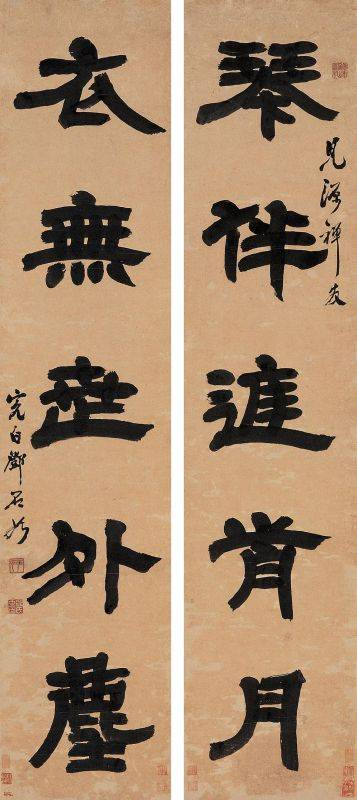 琴伴進月
見源禪友
衣無世外塵
完白鄧石如